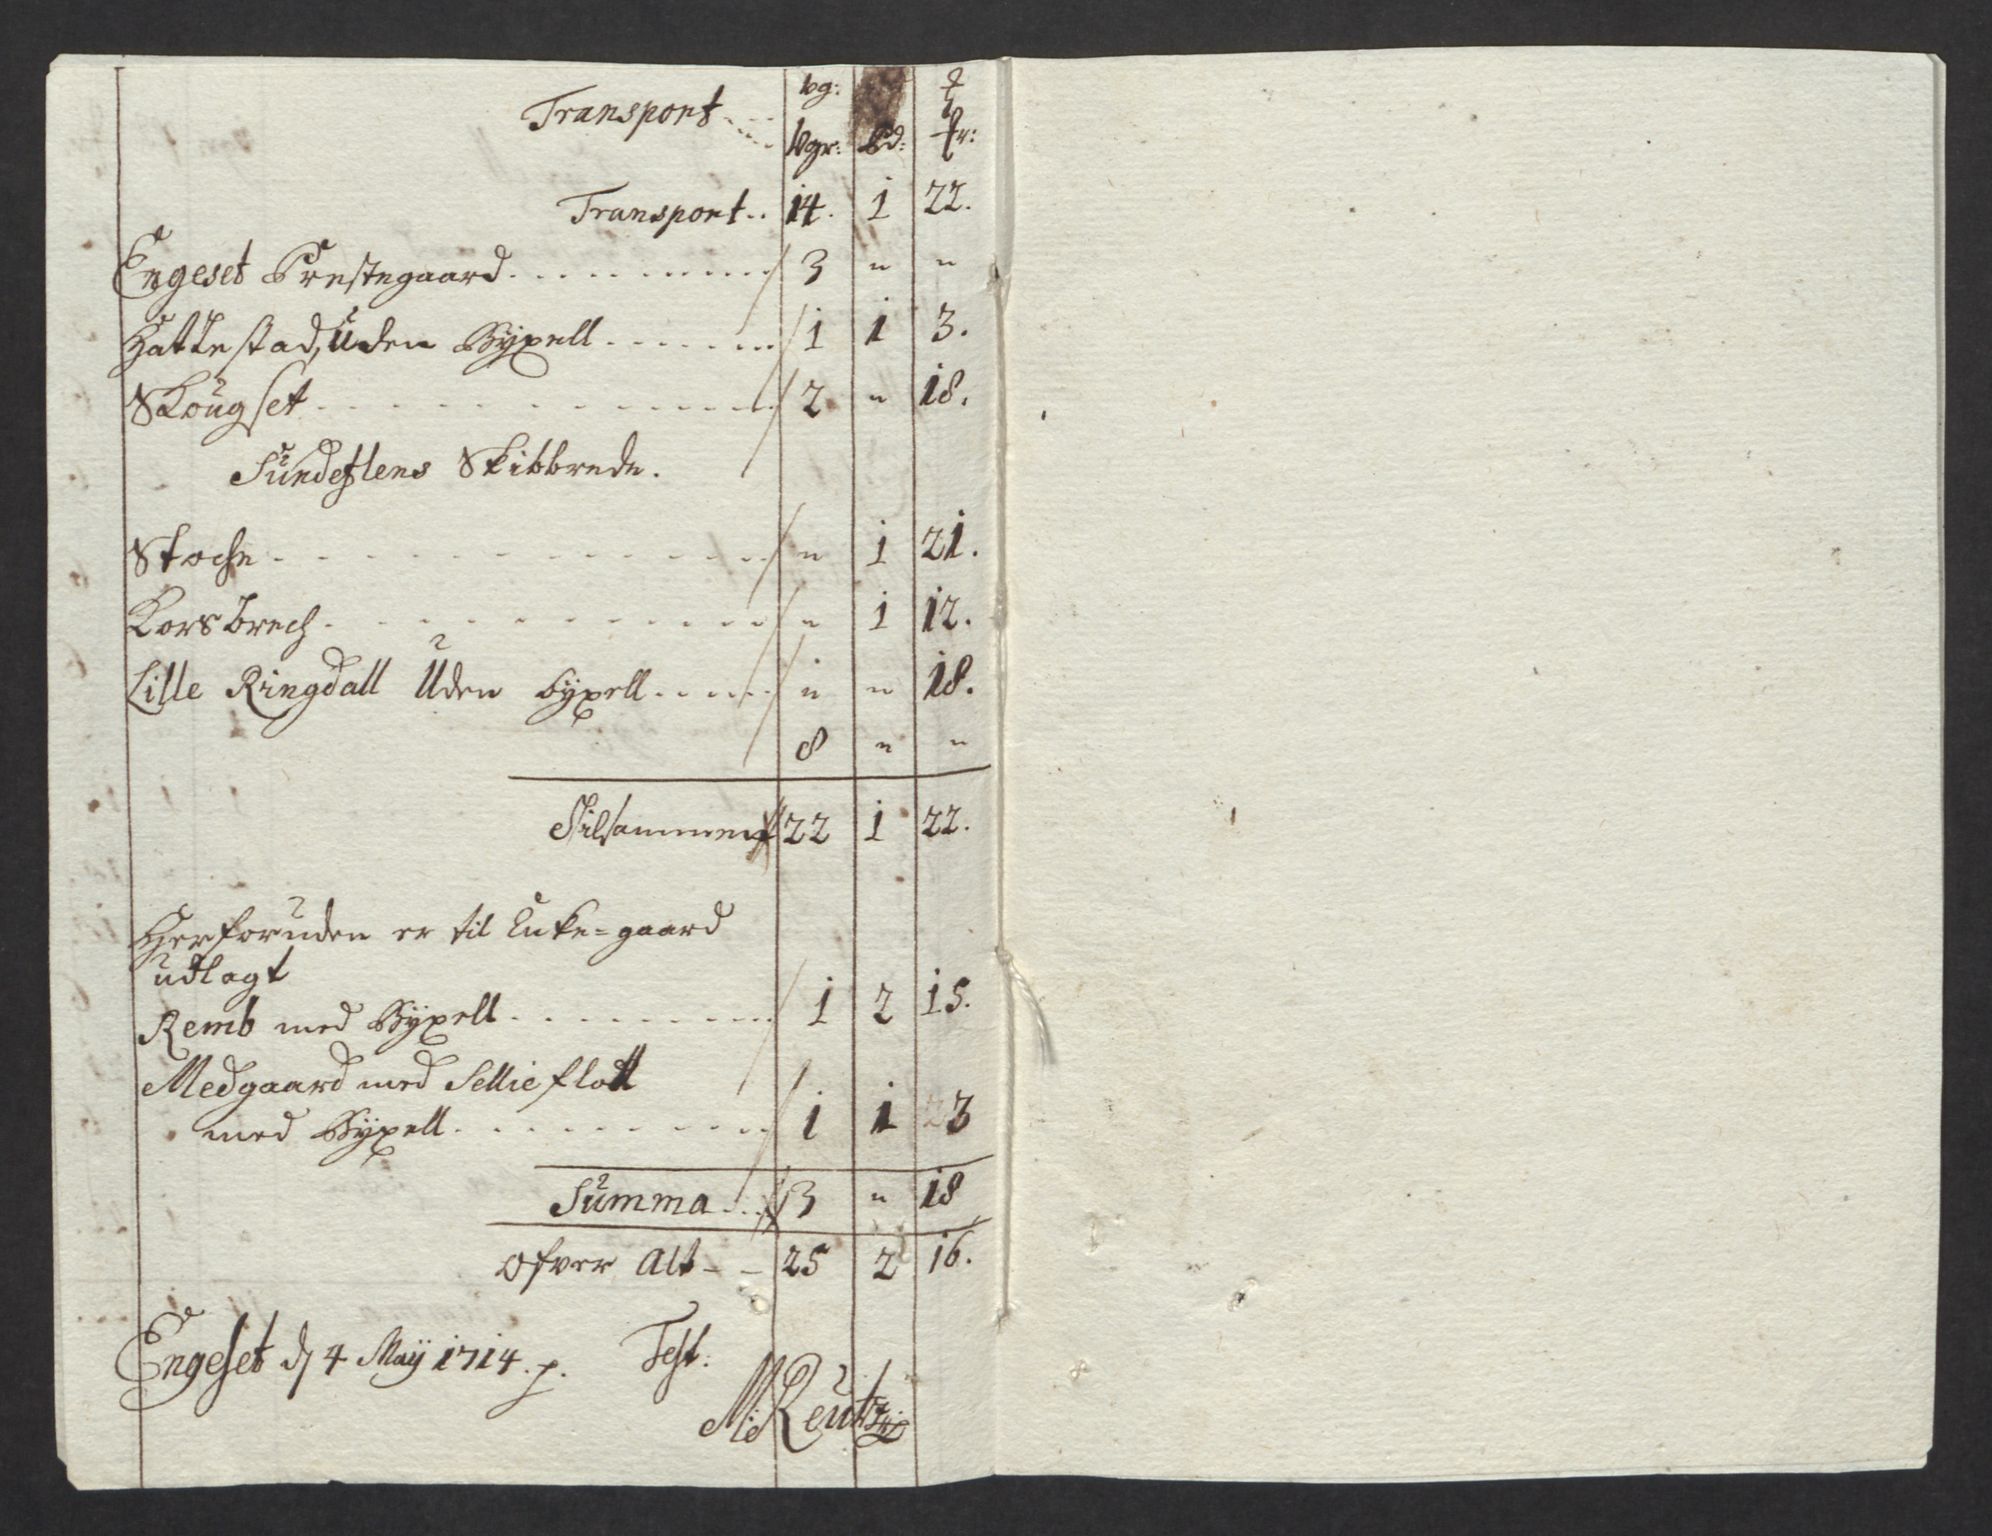 Transport vg:
Vgr: Pd: fr:
Transport .. 14. 1 22.
Engeset Prestegaard . . . . . . . 3 " "
Hattestad, Uden Bÿxell . . . . . . 1 1 3.
Skougset . . . . . . . . . 2 " 18.
Sundeslens Skibbrede.
Stoche . . . . . . . . . " 1 21.
Korsbrech . . . . . . . . . " 1 12.
Lille Ringdall Uden bÿxell . . . . . " " 18.
8 " "
Tilsammen 22 1 22.
Herforuden er til Enke-gaard
udlagt
Remb med Bÿxell . . . . . . . . 1 2 15.
Medgaard med Sellieflott
med Bÿxell . . . . . . . . . 1 1 23
Summa . . . 3 " 18
Ofver Alt - - 25 2 16.
Engeset d 4 Maÿ 1714. p. Test:
M Reutz